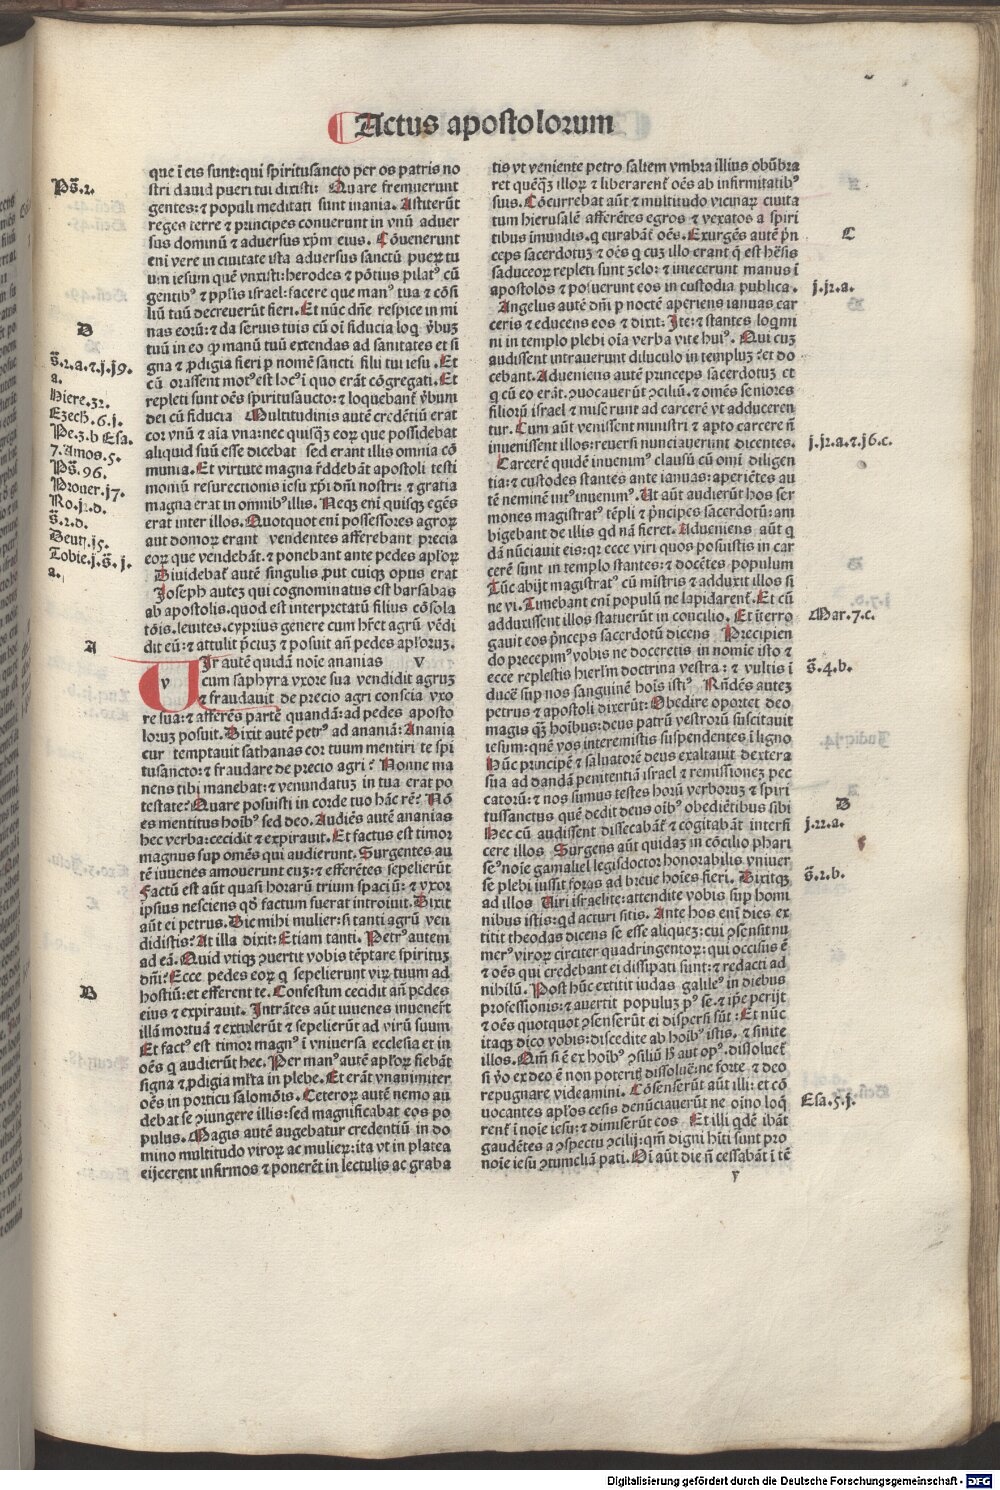 Actus apostolorum
que ī eis sunt: qui spiritusancto per os patris no
stri dauid pueri tui dixisti: Quare fremuerunt
gentes: ⁊ populi meditati sunt inania. Astiterūt
reges terre ⁊ principes conuerunt in vnū aduer
sus dominū ⁊ aduersus xp̄m eius. Cōuenerunt
eni vere in ciuitate ista aduersus sanctū pueꝝ tu
um iesum quē vnxisti: herodes ⁊ pōtius pilatꝰ cū
gentibꝰ ⁊ pp̄lis israel: facere que manꝰ tua ⁊ cōsi
liū tuū decreuerūt fieri. Et nūc dn̄e respice in mi
nas eorū: ⁊ da seruis tuis cū oī fiducia loq̄ v̄buꝫ
tuū in eo ꝙ manū tuū extendas ad sanitates et si
gna ⁊ ꝓdigia fieri ꝑ nomē sancti filii tui iesu. Et
cū orassent motꝰ est locꝰ ī quo erāt cōgregati. Et
repleti sunt oēs spiritusancto: ⁊ loquebant̄ v̄bum
dei cū fiducia Multitudinis autē credētiū erat
cor vnū ⁊ aīa vna: nec quisq̄ꝫ eoꝝ que possidebat
aliquid suū esse dicebat sed erant illis omnia cō
munia. Et virtute magna r̄ddebāt apostoli testi
moniū resurectionis iesu xp̄i dn̄i nostri: ⁊ gratia
magna erat in omnibꝰ illis. Neqꝫ enī quisqꝫ egēs
erat inter illos. Quotquot enī possessores agroꝝ
aut domoꝝ erant vendentes afferebant precia
eoꝝ que vendebāt. ⁊ ponebant ante pedes ap̄loꝝ
Diuidebat̄ autē singulis ꝓut cuiqꝫ opus erat
Joseph auteꝫ qui cognominatus est barsabas
ab apostolis. quod est interpretatū filius cōsola
tōis. leuites. cyprius genere cum hr̄et agrū vēdi
dit eū: ⁊ attulit p̄ciuꝫ ⁊ posuit an̄ pedes ap̄loꝝ.
VIr autē quidā noīe ananias V
cum saphyra vxore sua vendidit agruꝫ
⁊ fraudauit de precio agri conscia vxo
re sua: ⁊ afferēs partē quandā: ad pedes aposto
loruꝫ posuit. Dixit autē petrꝰ ad ananiā: Anania
cur temptauit sathanas cor tuum mentiri te spi
tusancto: ⁊ fraudare de precio agri? Nonne ma
nens tibi manebat: ⁊ venundatuꝫ in tua erat po
testate? Quare posuisti in corde tuo hāc rē? Nō
es mentitus hoībꝰ sed deo. Audiēs autē ananias
hec verba: cecidit ⁊ expirauit. Et factus est timor
magnus sup omēs qui audierunt. Surgentes au
tē iuuenes amouerunt euꝫ: ⁊ efferētes sepelierūt
Factū est aūt quasi horarū trium spaciū: ⁊ vxor
ipsius nesciens qō factum fuerat introiuit. Dixit
aūt ei petrus. Dic mihi mulier: si tanti agrū ven
didistis? At illa dixit: Etiam tanti. Petrꝰ autem
ad eā. Quid vtiqꝫ ꝯuertit vobis tēptare spirituꝫ
dn̄i? Ecce pedes eoꝝ q̄ sepelierunt viꝝ tuum ad
hostiū: et efferent te. Confestim cecidit an̄ pedes
eius ⁊ expirauit. Intrātes aūt iuuenes inuener̄t
illā mortuā ⁊ extulerūt ⁊ sepelierūt ad virū suum
Et factꝰ est timor magnꝰ ī vniuersa ecclesia et in
oēs q̄ audierūt hec. Per manꝰ autē ap̄loꝝ fiebāt
signa ⁊ ꝓdigia ml̄ta in plebe. Et erāt vnanimiter
oēs in porticu salomōis. Ceteroꝝ autē nemo au
debat se ꝯiungere illis: sed magnificabat eos po
pulus. Magis autē augebatur credentiū in do
mino multitudo viroꝝ ac mulieꝝ: ita vt in platea
eijcerent infirmos ⁊ ponerēt in lectulis ac graba
tis vt veniente petro saltem vmbra illius obūbra
ret quēq̄ꝫ illoꝝ ⁊ liberarent̄ oēs ab infirmitatibꝰ
suis. Cōcurrebat aūt ⁊ multitudo vicinaꝝ ciuita
tum hierusalē afferētes egros ⁊ vexatos a spiri
tibus īmundis. q̄ curabāt̄ oēs. Exurgēs autē p̄n
ceps sacerdotuꝫ ⁊ oēs q̄ cuꝫ illo erant q̄ est hēsis
saduceoꝝ repleti sunt zelo: ⁊ iniecerunt manus ī
apostolos ⁊ posuerunt eos in custodia publica.
Angelus autē dn̄i ꝑ noctē aperiens ianuas car
ceris ⁊ educens eos ⁊ dixit. Ite: ⁊ stantes loqm̄i
ni in templo plebi oīa verba vite huiꝰ. Qui cuꝫ
audissent intrauerunt diluculo in templuꝫ: et do
cebant. Adueniens autē princeps sacerdotuꝫ et
q̄ cū eo erāt. ꝯuocauerūt ꝯciliū. ⁊ omēs seniores
filiorū israel ⁊ miserunt ad carcerē vt adduceren
tur. Cum aūt venissent ministri ⁊ apto carcere n̄
inuenissent illos: reuersi nunciauerunt dicentes.
Carcerē quidē inuenimꝰ clausū cū omī diligen
tia: ⁊ custodes stantes ante ianuas: aperiētes au
tē neminē intꝰ inuenimꝰ. Ut aūt audierūt hos ser
mones magistratꝰ tēpli ⁊ p̄ncipes sacerdotū: am
bigebant de illis qd nā fieret. Adueniens aūt q̄
dā nūciauit eis: qꝛ ecce viri quos posuistis in car
cerē sunt in templo stantes: ⁊ docētes populum
Tūc abijt magistratꝰ cū mīstris ⁊ adduxit illos si
ne vi. Timebant enī populū ne lapidarent̄. Et cū
adduxissent illos statuerūt in concilio. Et īterro
gauit eos p̄nceps sacerdotū dicens Precipien
do precepimꝰ vobis ne doceretis in nomīe isto ⁊
ecce replestis hierl̄m doctrina vestra: ⁊ vultis ī
ducē sup nos sanguinē hoīs istiꝰ. Rn̄dēs auteꝫ
petrus ⁊ apostoli dixerūt: Obedire oportet deo
magis q̄ꝫ hoībus: deus patrū vestrorū suscitauit
iesum: quē vos interemistis suspendentes ī ligno
Hūc principē ⁊ saluatorē deus exaltauit dextera
sua ad dandā penitentiā israel ⁊ remissioneꝫ pec
catorū: ⁊ nos sumus testes horū verboruꝫ ⁊ spiri
tussanctus quē dedit deus oībꝰ obediētibus sibi
Hec cū audissent dissecabāt̄ ⁊ cogitabāt interfi
cere illos Surgens aūt quidaꝫ in cōcilio phari
seꝰ noīe gamaliel legisdoctor honorabilis vniuer
se plebi iussit foras ad breue hoīes fieri. Dixitqꝫ
ad illos Uiri israelite: attendite vobis sup homi
nibus istis: qd acturi sitis. Ante hos enī dies ex
titit theodas dicens se esse alique ꝫ: cui ꝯsensit nu
merꝰ viroꝝ circiter quadringentoꝝ: qui occisus ē
⁊ oēs qui credebant ei dissipati sunt: ⁊ redacti ad
nihilū. Post hūc extitit iudas galileꝰ in diebus
professionis: ⁊ auertit populuꝫ pꝰ se. ⁊ ip̄e perijt
⁊ oēs quotquot ꝯsenserūt ei dispersi sūt: Et nūc
itaqꝫ dico vobis: discedite ab hoībꝰ istis. ⁊ sinite
illos. Qm̄ si ē ex hoībꝰ ꝯsiliū ħ aut opꝰ. dissoluet̄
si v̄o ex deo ē non poteritꝫ dissoluē: ne forte ⁊ deo
repugnare videamini. Cōsenserūt aūt illi: et cō
uocantes ap̄los cesis denūciauerūt ne oīno loq̄
rent̄ ī noīe iesu: ⁊ dimiserūt eos Et illi q̄dē ibāt
gaudētes a ꝯspectu ꝯcilij: qm̄ digni hīti sunt pro
noīe iesu ꝯtumeliā pati. Oī aūt die n̄ cessabāt ī tē
v
Ps̄. 2.
D
s̄. 2. a. ⁊. j. j9.
a.
Hiere. 32.
Ezech. 6. j.
Pe. 3. b Esa.
7. Amos. 5.
Ps̄. 96.
Prouer. j7.
Ro. j2. d.
s̄. 2. d.
Deut. j5.
Tobie. j. s̄. j.
a.
A
B
C
j. j2. a.
j. j2. a. ⁊. j6. c.
Mar. 7. c.
s̄. 4. b.
D
j. 22. a.
s̄. 2. b.
Esa. 5. j.
Digitalisierung gefördert durch die Deutsche Forschungsgemeinschaft - DFG